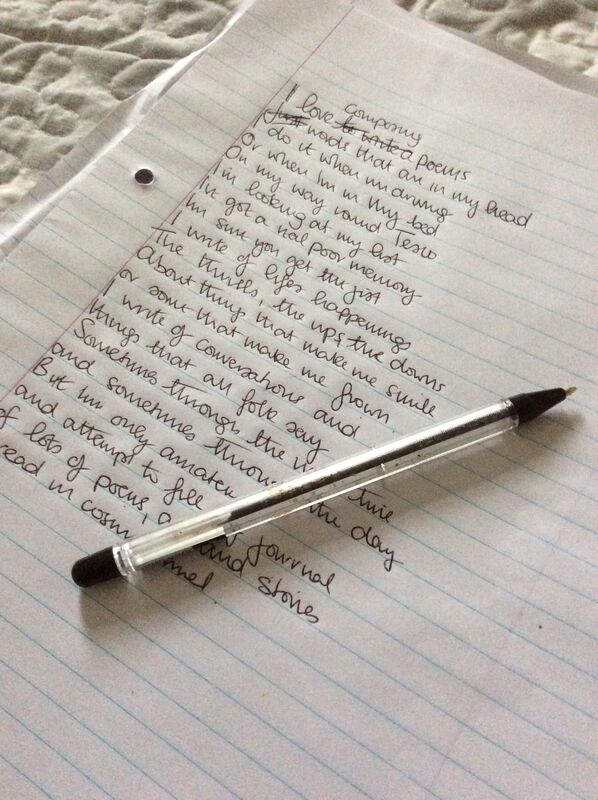 Composing
I love to write a poems
Just words that are in my head
I do it when im driving
Or when I'm in my bed
On my way round Tesco
I'm looking at my list
I've got a real poor memory
Im sure you get the jist
I write of lifes happenings
The thrills, the ups the downs
About things that make me smile
or some that make me frown
I write of conversations and
things that all folk say
Sometimes through the time
and sometimes the day
But im only
and attempt to fill journal
of lots of poems, and stories
read in